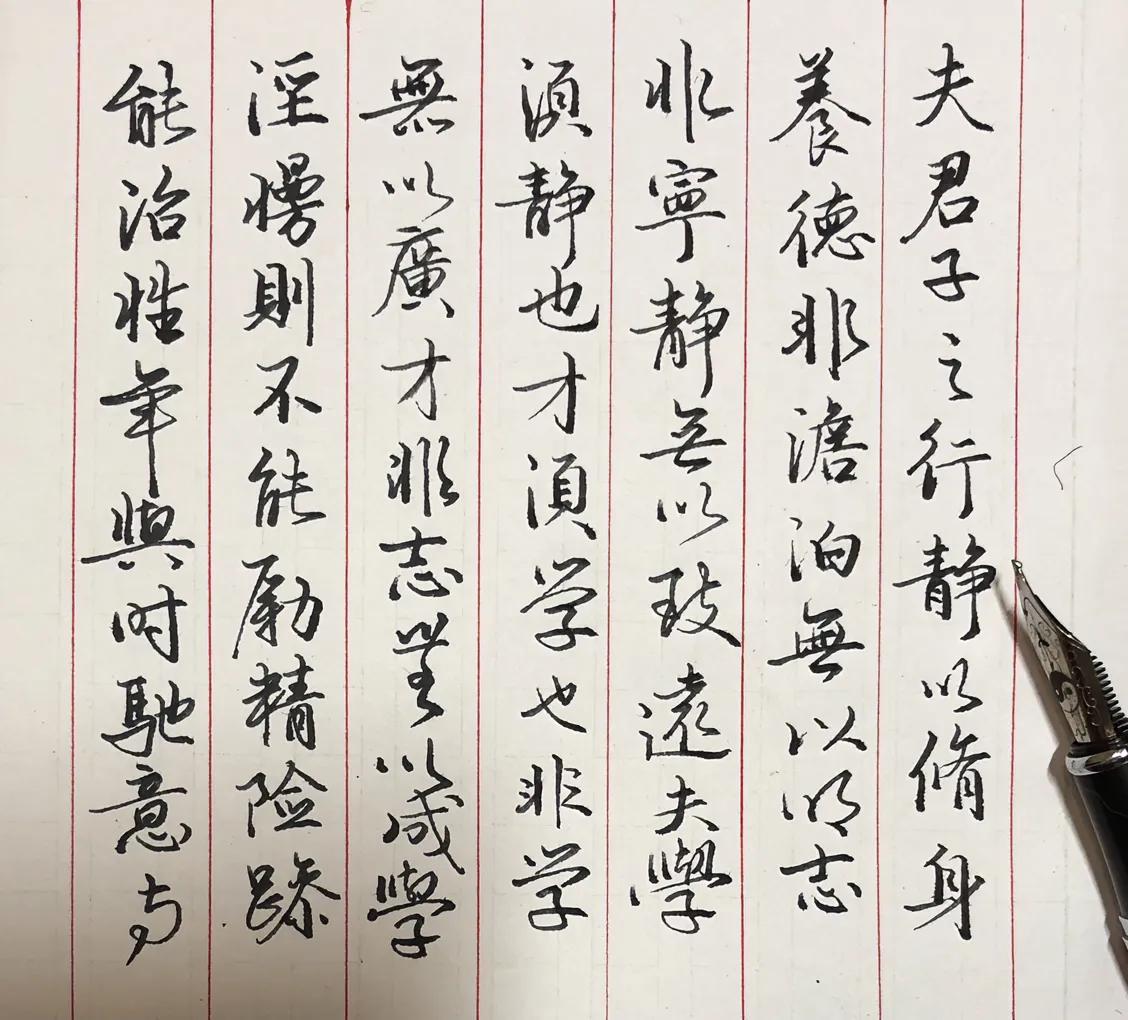 夫君子之行静以脩身
養德非澹泊無以明志
非寧静无以致遠夫學
須静也才須学也非学
無以廣才非志無以成學
淫慢則不能励精险躁
能治性年與时馳意与